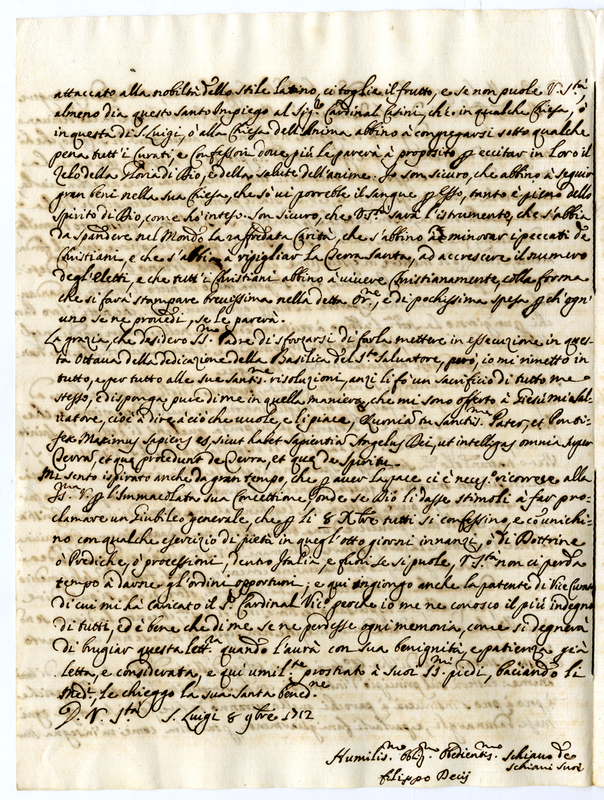 attaccato alla nobiltà dello stile latino, ci toglie il frutto, e se non puole V. S.tà
almeno dia questo santo Impiego al Sig.r Cardinal Casini, che in qualche Chiesa, ò
in questa di S. Luigi, ò alla Chiesa dell'Anima abbino à congregarsi sotto qualche
pena tutt'i Curati, e Confessori dove più le parerà à proposito p eccitar in loro il
Zelo della Gloria di Dio, e della salute dell'anime. Io son sicuro, che abbino à seguir
gran beni nella sua Chiesa, che sò vi porrebbe il sangue p Esso, tanto è pieno dello
Spirito di Dio, come hò inteso. Son sicuro, che V. S.tà sarà l'istrumento, che s'abbia
da spandere nel Mondo la raffredata Carità, che s'abbino à minorar i peccati de
Christiani, e che s'abbia à ripigliar la Terra Santa, ad accrescere il numero
degl'Eletti, e che tutt'i Christiani abbino à vivere Christianamente, colla forma
che si farà stampare brevissima nella detta Or.ne, e di pochissima spesa p ch'ogn'
uno se ne provedi, se le parerà.
La grazia, che desidero SS.mo Padre di sforzarsi di farla mettere in essecuzione in ques-
ta Ottava della Dedicazione della Basilica del S.mo Salvatore, però io mi rimetto in
tutto, e per tutto alle sue Santis.me risoluzioni, anzi li fò un sacrificio di tutto me
stesso, e disponga pure di me in quella maniera, che mi sono offerto à Giesù mio Sal-
vatore, cioè à dire à ciò che vuole, e li piace, Quoniã tu Sanctis.me Pater, et Ponti-
fex Maximus Sapiens es, sicut habet Sapientiã Angelus Dei, ut intelligas omnia super
Terrã, et quæ procedunt de Terra, et quæ de Spiritu.
Mi sento ispirato anche da gran tempo, che p aver la pace ci è neces.o ricorrere alla
SS.ma V. p l'Immacolata sua Concettione, onde se Dio li dasse stimoli à far pro-
clamare un Giubileo generale, che p li 8 Xbre tutti si confessino, e comunichi-
no con qualche esercizio di pietà in quegl'otto giorni innanzi, ò di Dottrine
ò Prediche, ò processioni, dentro Italia, e fuori se si puole, V. S.tà non ci perda
tempo à darne gl'ordini opportuni; e qui ingiongo anche la patente di Vice Curato
di cui mi hà caricato il S.r Cardinal Vic.o perche io me ne conosco il più indegno
di tutti, ed è bene che di me se ne perdesse ogni memoria, come si degnerà
di brugiar questa lett.ra quando l'aurà con sua benignità, e patienza già
letta, e considerata, e qui umil.te prostrato à suoi SS.mi piedi, baciando li
Med.i, le chieggo la sua santa bened.ne
D. V. S.tà S. Luigi 8 9bre 1712
Humilis.mo Obblig.mo Obedientis.mo Schiavo de
Schiavi suoi
Filippo Decij